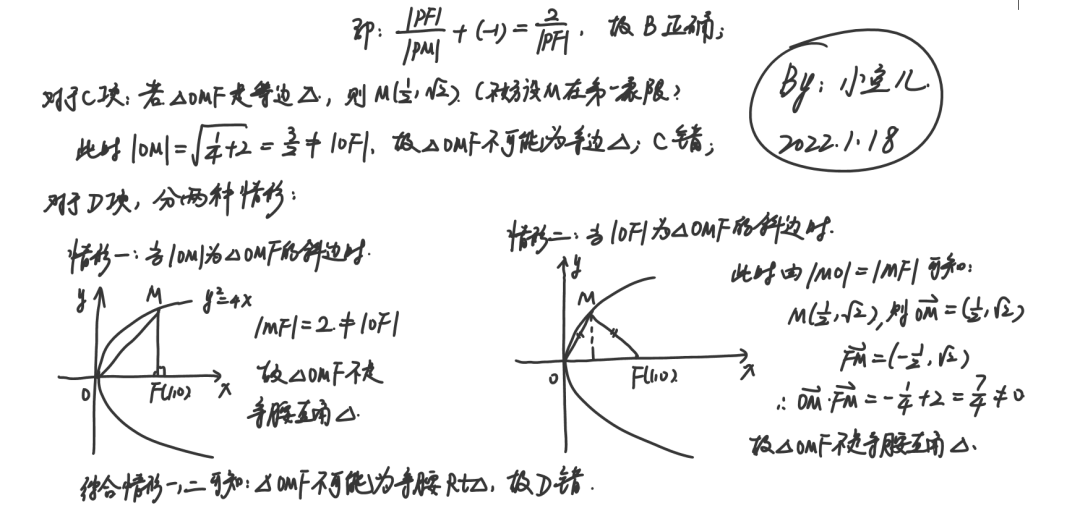 即: |PF|/|PM| + (-1) = 2/|PF|, 故B正确;
对于C项: 若△OMF是等边△, 则M(1/2,√2). (不妨设M在第一象限)
此时|OM|=√(1/4+2) = 3/2 ≠ |OF|, 故△OMF不可能为等边△; C错;
By: 小豆儿
2022.1.18
对于D项, 分两种情形:
情形一: 当|OM|为△OMF的斜边时.
y
M
y²=4x
O
F(1,0)
x
|MF|=2≠|OF|
故△OMF不是
等腰直角△.
情形二: 当|OF|为△OMF的斜边时.
y
M
O
F(1,0)
x
此时由|MO|=|MF|可知:
M(1/2,√2), 则OM→=(1/2,√2)
FM→=(-1/2,√2)
∴ OM→·FM→=-1/4+2=7/4≠0
故△OMF不是等腰直角△.
综合情形一,二可知: △OMF不可能为等腰Rt△, 故D错.